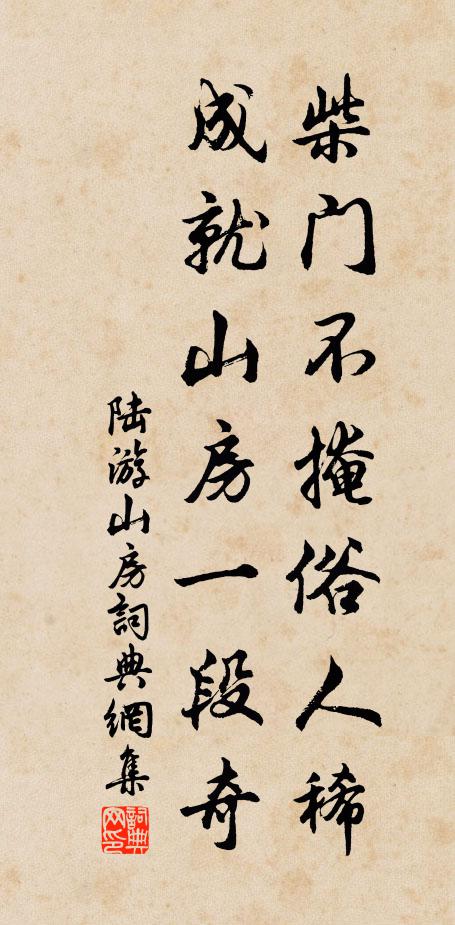 柴门不掩俗人稀
成就山房一段奇
陆游山房詞典網集
詞典
网印